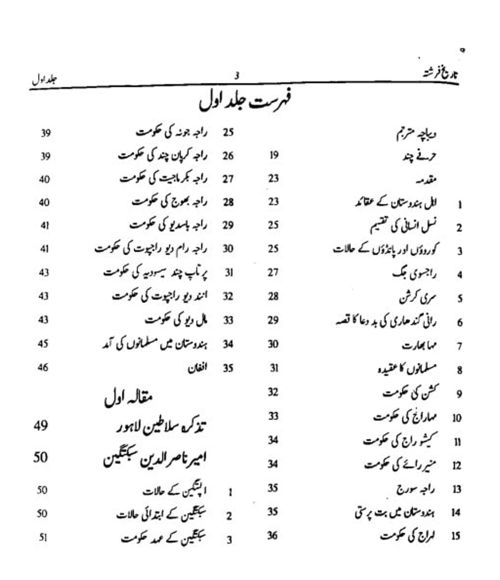 تاریخ فرشتہ
3
جلد اول
فہرست جلد اول
دیباچہ مترجم
حرفے چند 19
مقدمہ 23
1 اہل ہندوستان کے عقائد 23
2 نسل انسانی کی تقسیم 25
3 کوروؤں اور پانڈوؤں کے حالات 25
4 راجسوی جگ 27
5 سری کرشن 28
6 رانی گندھاری کی بددعا کا قصہ 29
7 مہابھارت 30
8 مسلمانوں کا عقیدہ 31
9 کشن کی حکومت 32
10 مہاراج کی حکومت 33
11 کیشو راج کی حکومت 34
12 منیر رائے کی حکومت 34
13 راجہ سورج 35
14 ہندوستان میں بت پرستی 35
15 لہراج کی حکومت 36
25 راجہ جونہ کی حکومت 39
26 راجہ کریان چند کی حکومت 39
27 راجہ بکرماجیت کی حکومت 40
28 راجہ بھوج کی حکومت 40
29 راجہ باسدیو کی حکومت 41
30 راجہ رام دیو راجپوت کی حکومت 41
31 پرتاپ چند سیسودیہ کی حکومت 43
32 انند دیو راجپوت کی حکومت 43
33 مال دیو کی حکومت 43
34 ہندوستان میں مسلمانوں کی آمد 45
35 افغان 46
مقالہ اول
تذکرہ سلاطین لاہور 49
امیر ناصر الدین سبکتگین 50
1 الپتگین کے حالات 50
2 سبکتگین کے ابتدائی حالات 50
3 سبکتگین کے عہد حکومت 51